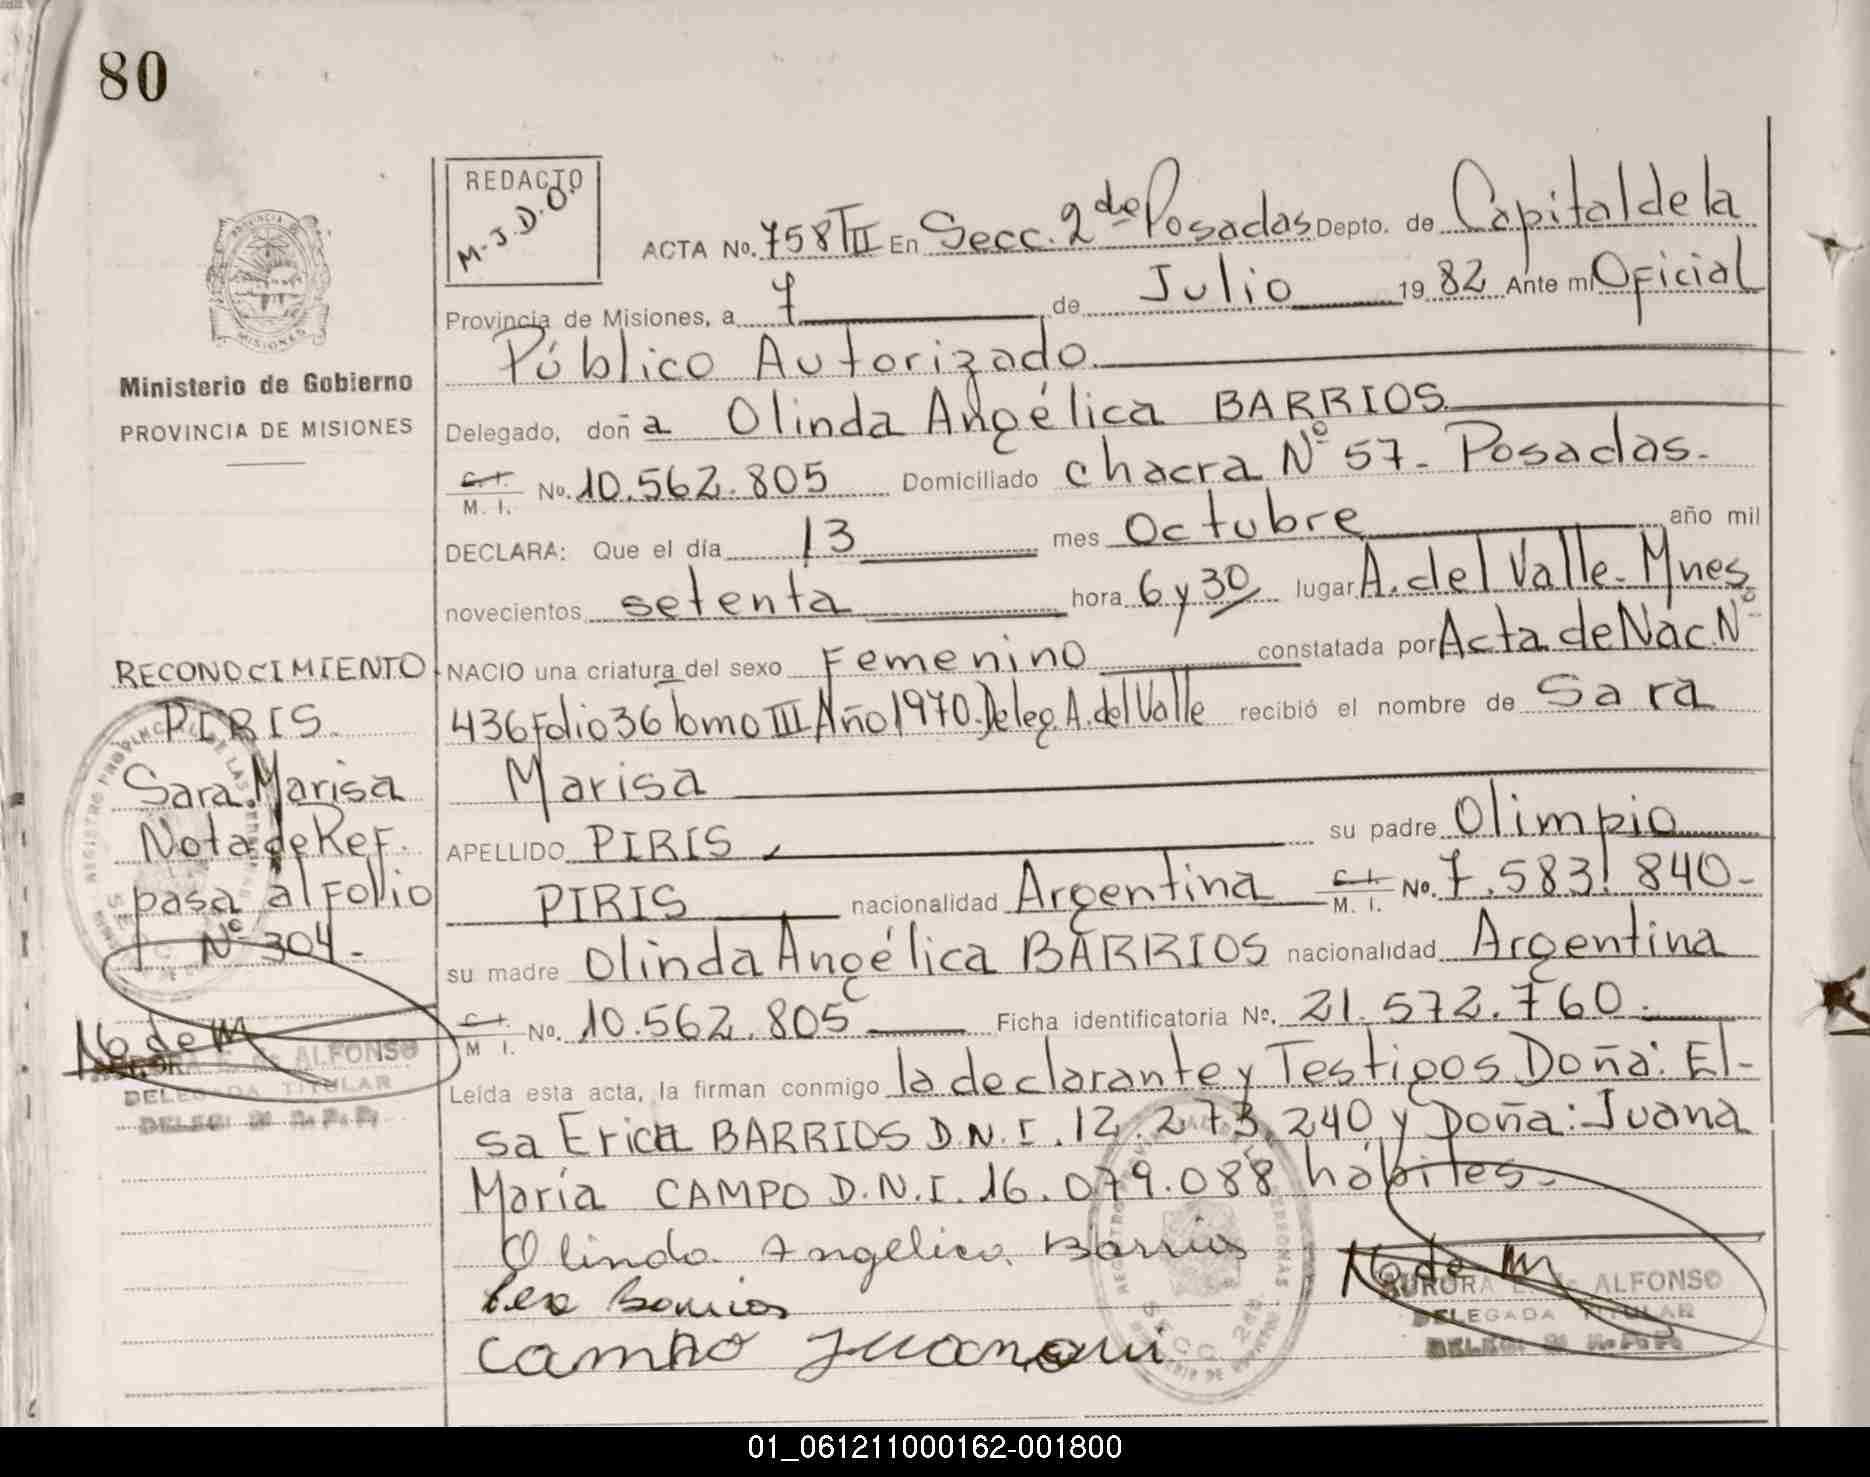 80
REDACTO
M.J.D.O.
ACTA No. 758 T III En Secc. 2da de Posadas Depto. de Capital de la
Provincia de Misiones, a 7 de Julio 1982 Ante mi Oficial
Público Autorizado
Delegado, doña Olinda Angélica BARRIOS
C. I.
M. I. No. 10.562.805 Domiciliado chacra Nº 57 - Posadas.
DECLARA: Que el día 13 mes Octubre año mil
novecientos setenta hora 6 y 30 lugar A. del Valle - Mnes.
NACIO una criatura del sexo Femenino constatada por Acta de Nac. Nº
436 Folio 36 Tomo III Año 1970. Deleg. A. del Valle recibió el nombre de Sara
Marisa
APELLIDO PIRIS su padre Olimpio
PIRIS nacionalidad Argentina C. I.
M. I. No. 7.583.840-
su madre Olinda Angélica BARRIOS nacionalidad Argentina
C. I.
M I. No. 10.562.805 Ficha identificatoria No. 21.572.760.
Leída esta acta, la firman conmigo la declarante y Testigos Doña: El-
sa Erica BARRIOS D.N.I. 12.273.240 y Doña: Juana
María CAMPO D.N.I. 16.079.088 hábiles.
Olinda Angelica Barrios
Barrios
Campo Juana
AURORA ALFONSO
DELEGADA TITULAR
PROVINCIA
MISIONES
Ministerio de Gobierno
PROVINCIA DE MISIONES
RECONOCIMIENTO
PIRIS
Sara Marisa
Nota de Ref.
pasa al Folio
Nº 304.
AURORA ALFONSO
DELEGADA TITULAR
01_061211000162-001800